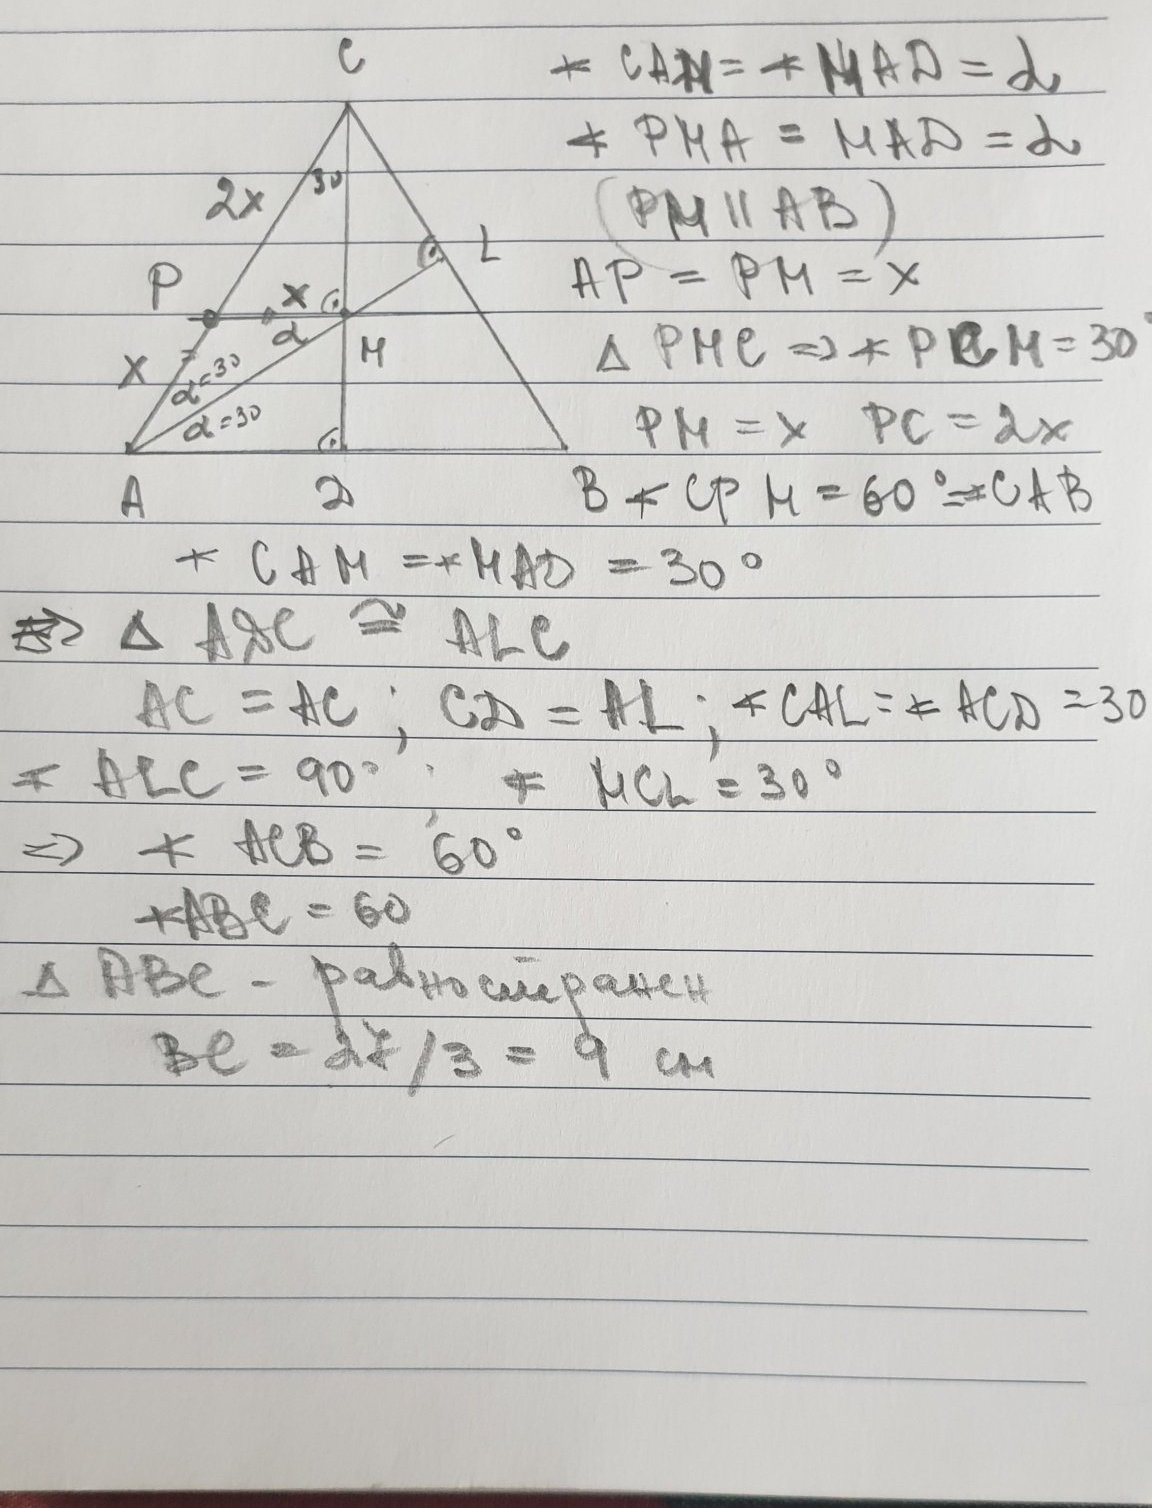 C
∢ CAM = ∢ MAD = α
∢ PMA = MAD = α
(PM || AB)
AP = PM = x
Δ PMC => ∢ PCM = 30°
PM = x PC = 2x
∢ CPM = 60° = ∢CAB
2x
30
P
x
L
α
M
x
α=30
α=30
A
D
B
∢ CAM = ∢MAD = 30°
=> Δ ADC ≅ ALC
AC = AC ; CD = AL ; ∢CAL = ∢ ACD = 30
∢ ALC = 90° ∢ MCL = 30°
=> ∢ ACB = 60°
∢ABC = 60
Δ ABC - равностранен
BC = 27/3 = 9 см